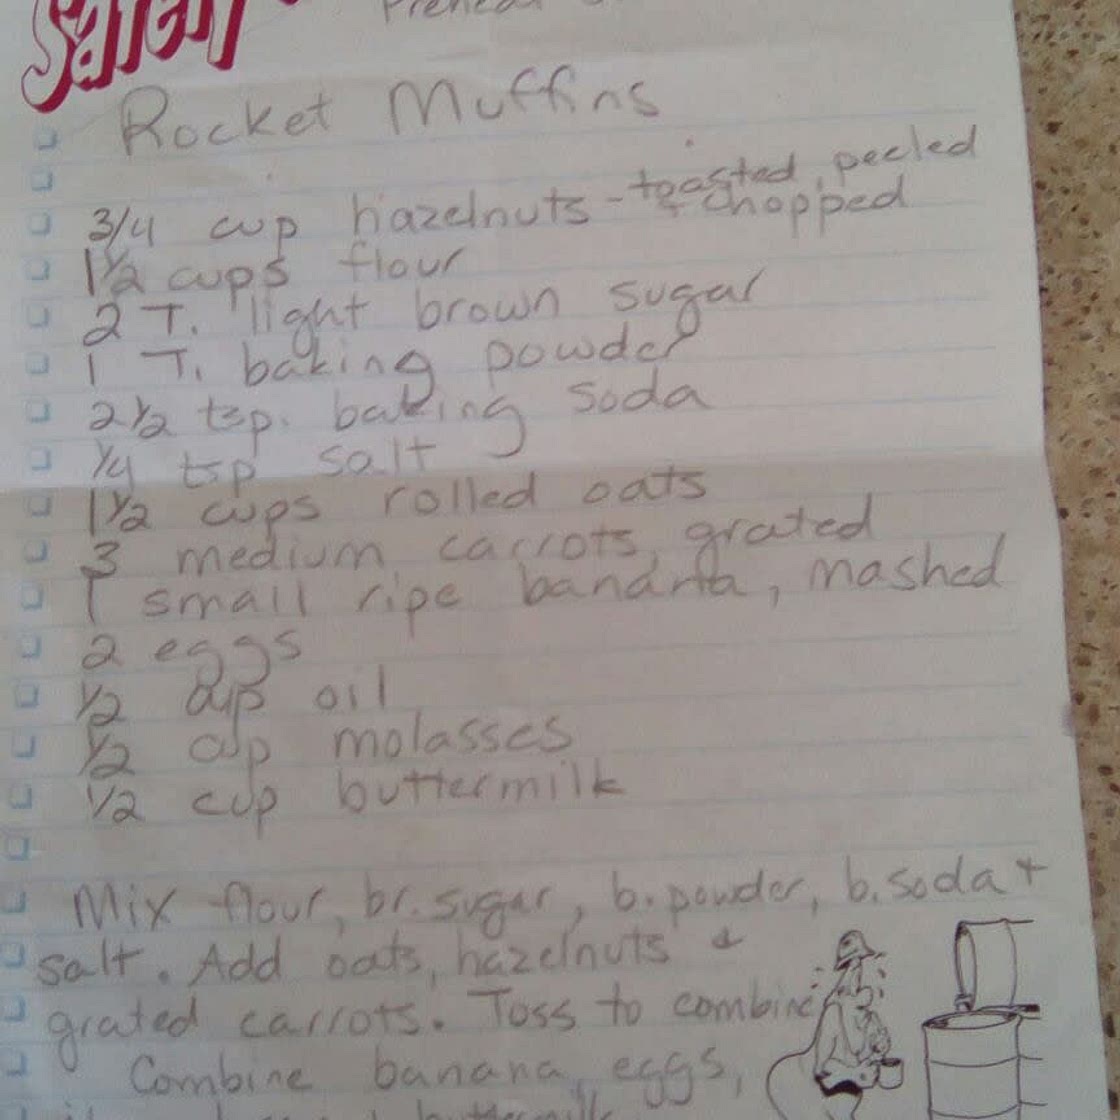 Safety
Preheat
Rocket Muffins
toasted, peeled
3/4 cup hazelnuts - & chopped
1 1/2 cups flour
2 T. light brown sugar
1 T. baking powder
2 1/2 tsp. baking soda
1/4 tsp salt
1 1/2 cups rolled oats
3 medium carrots, grated
1 small ripe banana, mashed
2 eggs
1/2 cup oil
1/2 cup molasses
1/2 cup buttermilk
Mix flour, br. sugar, b. powder, b. soda +
salt. Add oats, hazelnuts &
grated carrots. Toss to combine
Combine banana, eggs,
buttermilk